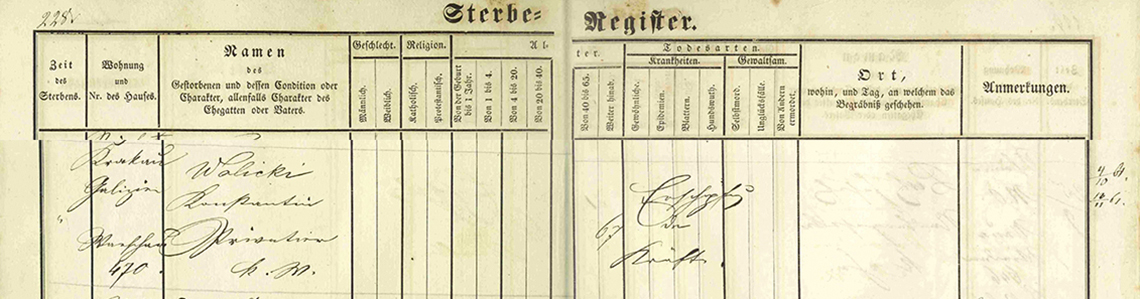 228.
Sterbe= Register.
Zeit des Sterbens.
Wohnung und Nr. des Hauses.
Namen des Gestorbenen und dessen Condition oder Charakter, allenfalls Charakter des Ehegatten oder Vaters.
Geschlecht.
Männlich.
Weiblich.
Religion.
Katholisch.
Protestanisch.
Al- ter.
Von der Geburt bis 1 Jahre.
Von 1 bis 4.
Von 4 bis 20.
Von 20 bis 40.
Von 40 bis 65.
Weiter hinab.
Todesarten.
Krankheiten.
Gewöhnliche.
Epidemien.
Blattern.
Hundswuth.
Gewaltsam.
Selbstmord.
Unglücksfälle.
Von Andern ermordet.
Ort,
wohin, und Tag, an welchem das Begräbniß geschehen.
Anmerkungen.
Krakau
Galizien
"
Warschau
470.
Wolicki
Konstantin
Privatier
k. W.
67
Erschöpfg
der
Kräfte.